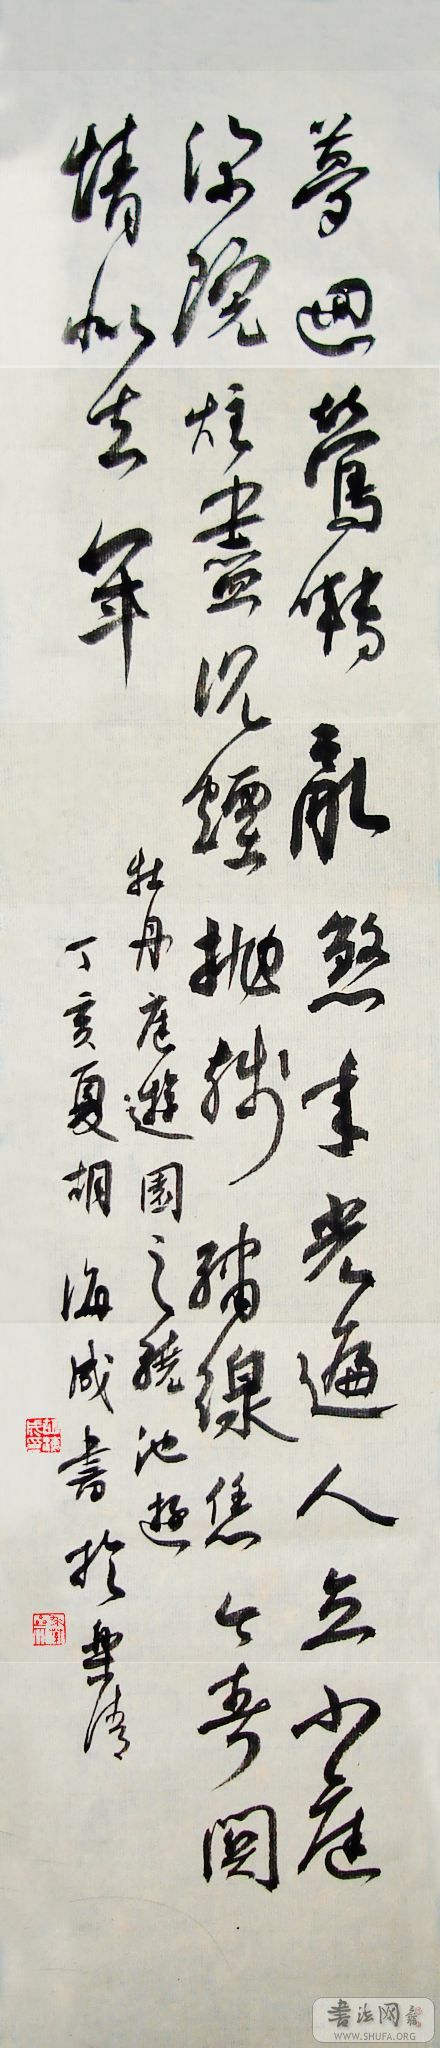 夢回莺囀亂煞年光遍人立小庭
深院炷盡沉煙抛殘繡線恁今春関
情似去年
牡丹庭遊園之繞池遊
丁亥夏胡海成書於樂清
書法网
WWW.SHUFA.ORG